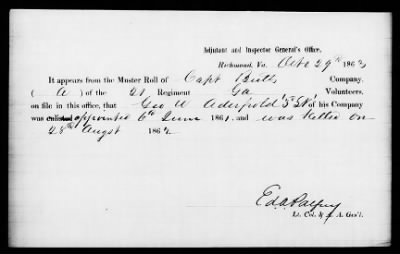 Adjutant and Inspector General's Office.
Richmond, Va. Octo 29th 1862,
It appears from the Muster Roll of Capt Butts Company.
( A ) of the 21 Regiment Ga Volunteers.
on file in this office, that Geo W of his Company
was enlisted appointed 6th June 1861. and was killed on
28th Augst 1862
Ed A Palfrey
Lt. Col. & A. A. Gen'l.